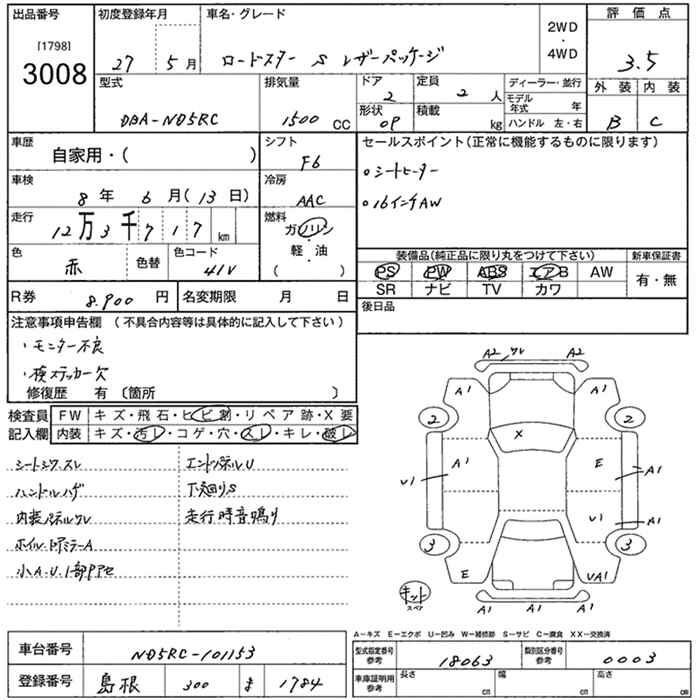 出品番号 初度登録年月 車名・グレード 評価点
[1798]
3008
27年 5月 ロードスター S レザーパッケージ 2WD・4WD 3.5
型式 排気量 ドア 定員 ディーラー・並行 外装 内装
DBA-ND5RC 1500 CC 2 2人 モデル年式 年
形状 積載
OP kg ハンドル 左・右 B C
車歴 シフト セールスポイント(正常に機能するものに限ります)
自家用・( ) F6
車検 冷房 ○シートヒーター
8年 6月(13日) AAC ○16インチAW
走行 燃料
12万3千717km ガソリン・軽・油( )
色 色替 色コード 装備品(純正品に限り丸をつけて下さい) 新車保証書
赤 41V PS PW ABS エアB AW 有・無
SR ナビ TV カワ
R券 8.900円 名変期限 月 日 後日品
注意事項申告欄 (不具合内容等は具体的に記入して下さい)
・モニター不良
・積ステッカー欠
修復歴 有 〔箇所 〕
検査員 FW キズ・飛石・ヒビ割・リペア跡・X要
記入欄 内装 キズ・汚レ・コゲ・穴・スレ・キレ・破レ
シートシワ.スレ エンドパネルU
ハンドルハゲ 下廻りS
内装パネルワレ 走行時音鳴り
ホイル.ドアミラーA
小A.U.1部Pアセ
A2 ワレ A2
A1 A1
2 2
X
A1 E A1
U1
U1 A1
3 3
E UA1
キット
スペア A1 A1 A1
A-キズ E-エクボ U-凹み W-補修跡 S-サビ C-腐食 XX-交換済
車台番号 ND5RC-101153 型式指定番号 参考 18063 類別区分番号 参考 0003
登録番号 島根 300 ま 1784 車庫証明用 参考 長さ cm 幅 cm 高さ cm